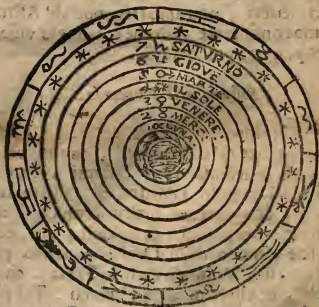 7 ♄ SATVRNO
6 ♃ GIOVE
5 ♂ MARTE
4 ☀ IL SOLE
3 ♀ VENERE
2 ☿ MERC